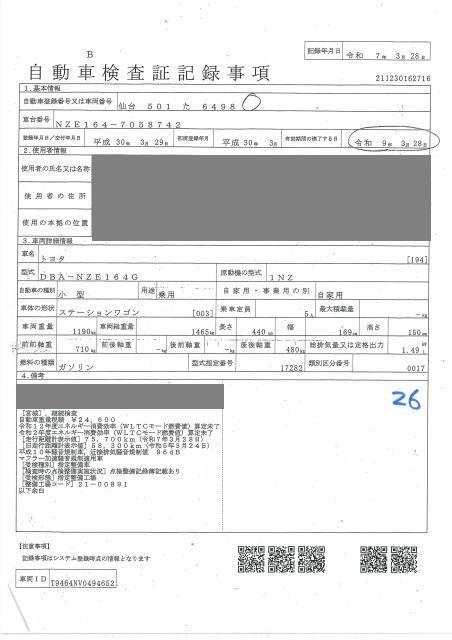 B
記録年月日 令和 7年 3月 28日
自動車検査証記録事項
211230162716
1.基本情報
自動車登録番号又は車両番号 仙台 501 た 6498
車台番号 NZE164-7058742
登録年月日/交付年月日 平成 30年 3月 29日 初度登録年月 平成 30年 3月 有効期間の満了する日 令和 9年 3月 28日
2.使用者情報
使用者の氏名又は名称
使用者の住所
使用の本拠の位置
3.車両詳細情報
車名 トヨタ [194]
型式 DBA-NZE164G 原動機の型式 1NZ
自動車の種別 小型 用途 乗用 自家用・事業用の別 自家用
車体の形状 ステーションワゴン [003] 乗車定員 5人 最大積載量 -kg
車両重量 1190kg 車両総重量 1465kg 長さ 440cm 幅 169cm 高さ 150cm
前前軸重 710kg 前後軸重 -kg 後前軸重 -kg 後後軸重 480kg 総排気量又は定格出力 1.49L
燃料の種類 ガソリン 型式指定番号 17282 類別区分番号 0017
4.備考
26
[宮城], 継続検査
自動車重量税額 ¥24,600
令和12年度エネルギー消費効率(WLTCモード燃費値)算定未了
令和2年度エネルギー消費効率(WLTCモード燃費値)算定未了
[走行距離計表示値]75,700km(令和7年3月28日)
[旧走行距離計表示値]58,300km(令和5年3月24日)
平成10年騒音規制車, 近接排気騒音規制値 96dB
マフラー加速騒音規制適用車
[受検種別]指定整備車
[検査時の点検整備実施状況]点検整備記録簿記載あり
[受検形態]指定整備工場
[整備工場コード]21-00891
以下余白
【注意事項】
記録事項はシステム登録時点の情報となります
車両ID T9464NV0494652